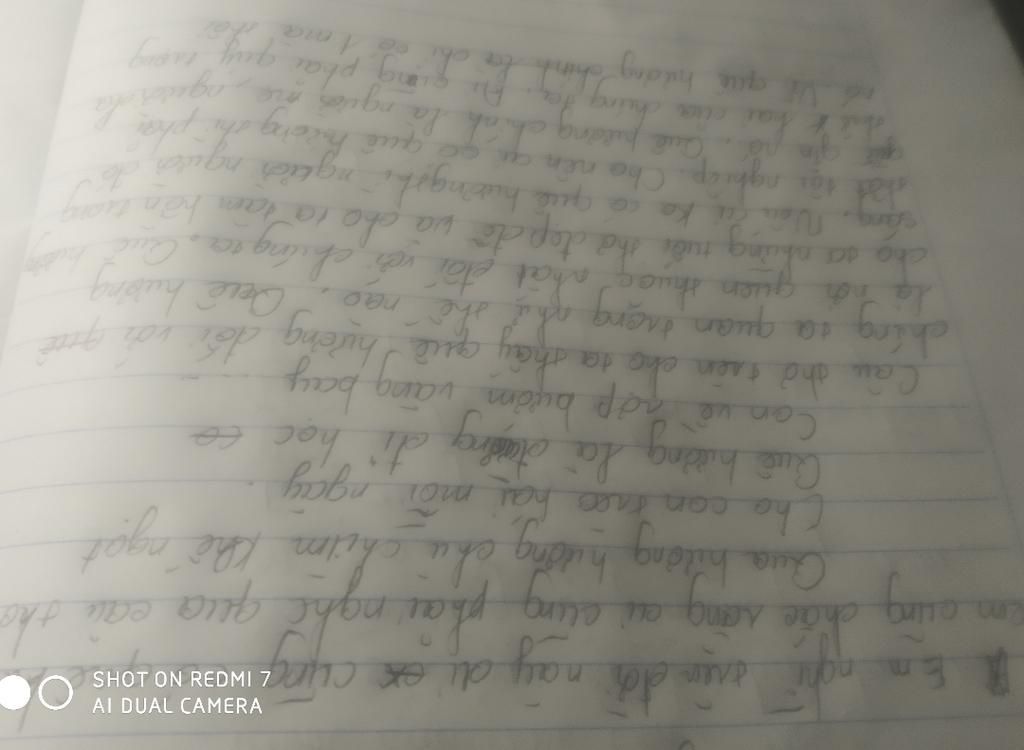 Em nghĩ trên đời này ai cũng có
em cũng chắc rằng ai cũng phải nghe qua câu thơ
Quê hương hương chù chùm khế ngọt
Cho con trèo hái mỗi ngày.
Quê hương là đường đi học
Con về rợp bướm vàng bay
Câu thơ trên cho ta thấy quê hương đối với
chúng ta quan trọng như thế nào. Quê hương
là nơi quen thuộc nhất đối với chúng ta. Quê hương
cho ta những tuổi thơ đẹp đẽ và cho ta tâm hồn trong
sáng. Nếu ai ko có quê hương thì người đó
thật tội nghiệp. Cho nên ai có quê hương thì phải
giữ gìn nó. Quê hương chính là người mẹ, người cha
thứ hai của chúng ta. Ai cũng phải quý trọng
nó. Vì quê hương chính là chỉ có 1 mà thôi
SHOT ON REDMI 7
AI DUAL CAMERA